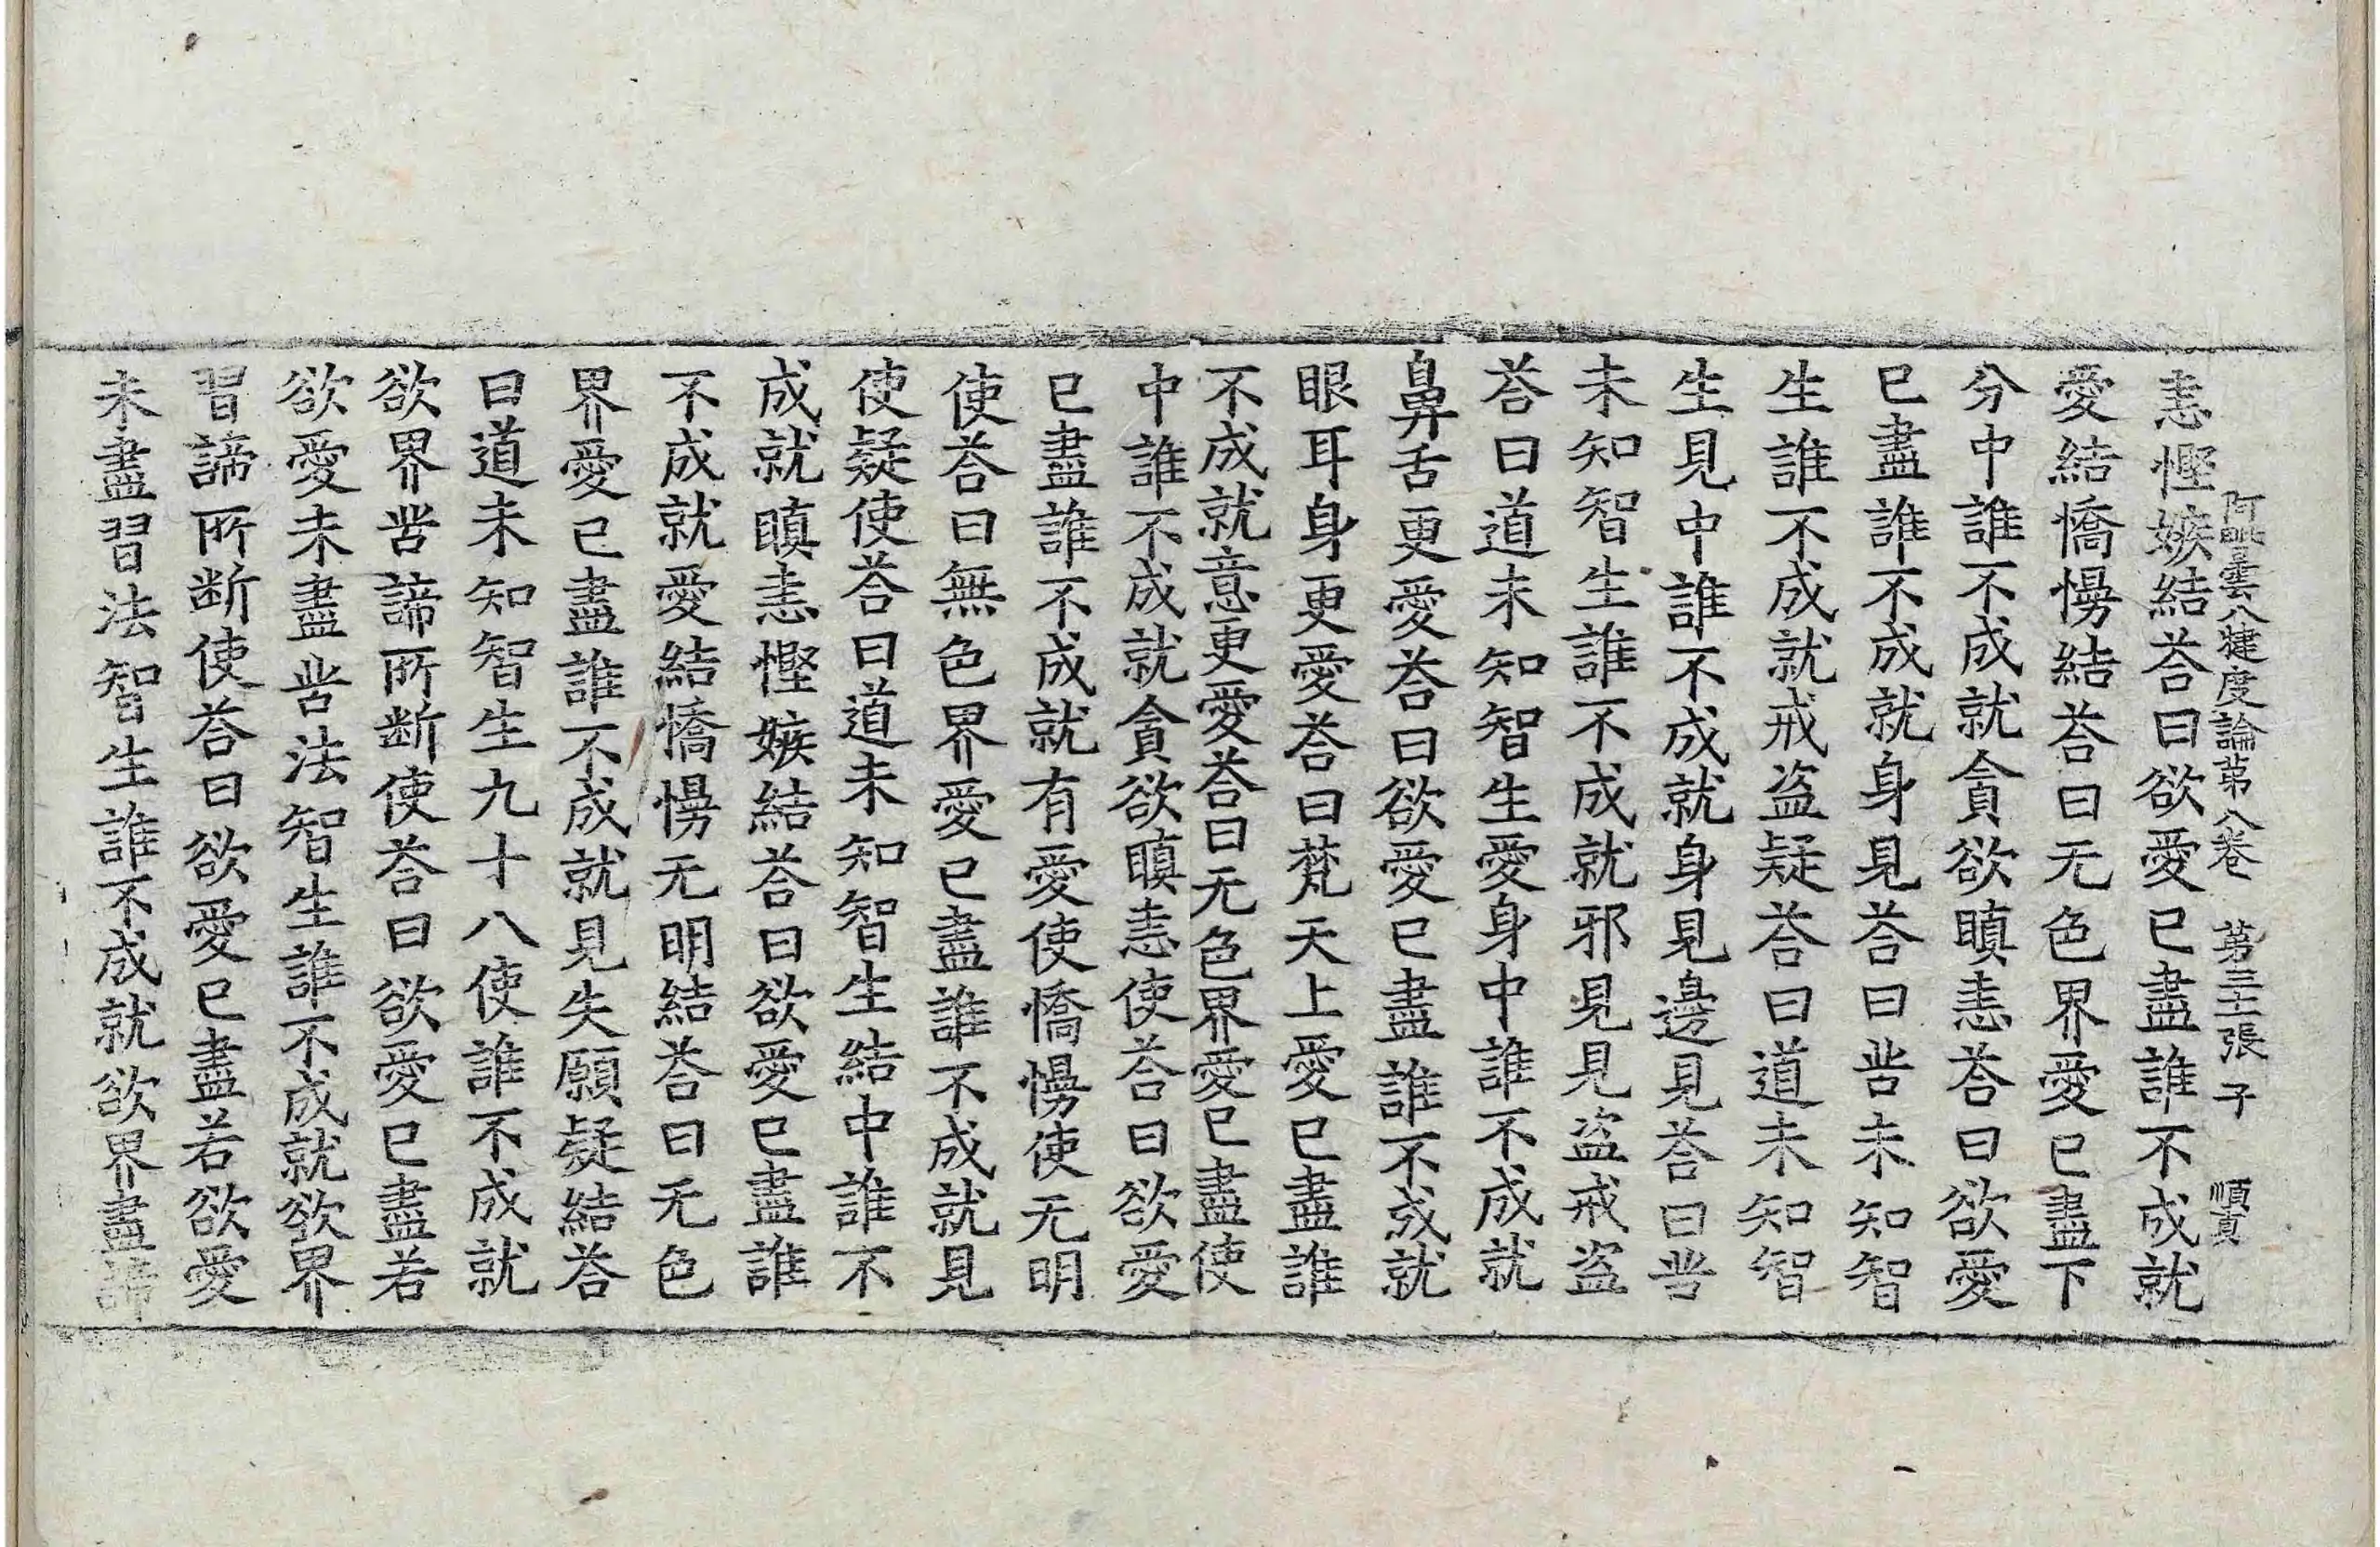 阿毗曇八犍度論苐八卷 苐三十二張 子 順真
恚慳嫉結荅曰欲愛已盡誰不成就
愛結憍慢結荅曰无色界愛已盡下
分中誰不成就貪欲瞋恚荅曰欲愛
已盡誰不成就身見荅曰甞未知智
生誰不成就戒盗疑荅曰道未知智
生見中誰不成就身見邊見荅曰甞
未知智生誰不成就邪見見盗戒盗
荅曰道未知智生愛身中誰不成就
鼻舌更愛荅曰欲愛已盡誰不成就
眼耳身更愛荅曰梵天上愛已盡誰
不成就意更愛荅曰无色界愛已盡使
中誰不成就貪欲瞋恚使荅曰欲愛
已盡誰不成就有愛使憍慢使无明
使荅曰無色界愛已盡誰不成就見
使疑使荅曰道未知智生結中誰不
成就瞋恚慳嫉結荅曰欲愛已盡誰
不成就愛結憍慢无明結荅曰无色
界愛已盡誰不成就見失願疑結荅
曰道未知智生九十八使誰不成就
欲界甞諦所断使荅曰欲愛已盡若
欲愛未盡甞法智生誰不成就欲界
習諦所断使荅曰欲愛已盡若欲愛
未盡習法智生誰不成就欲界盡諦